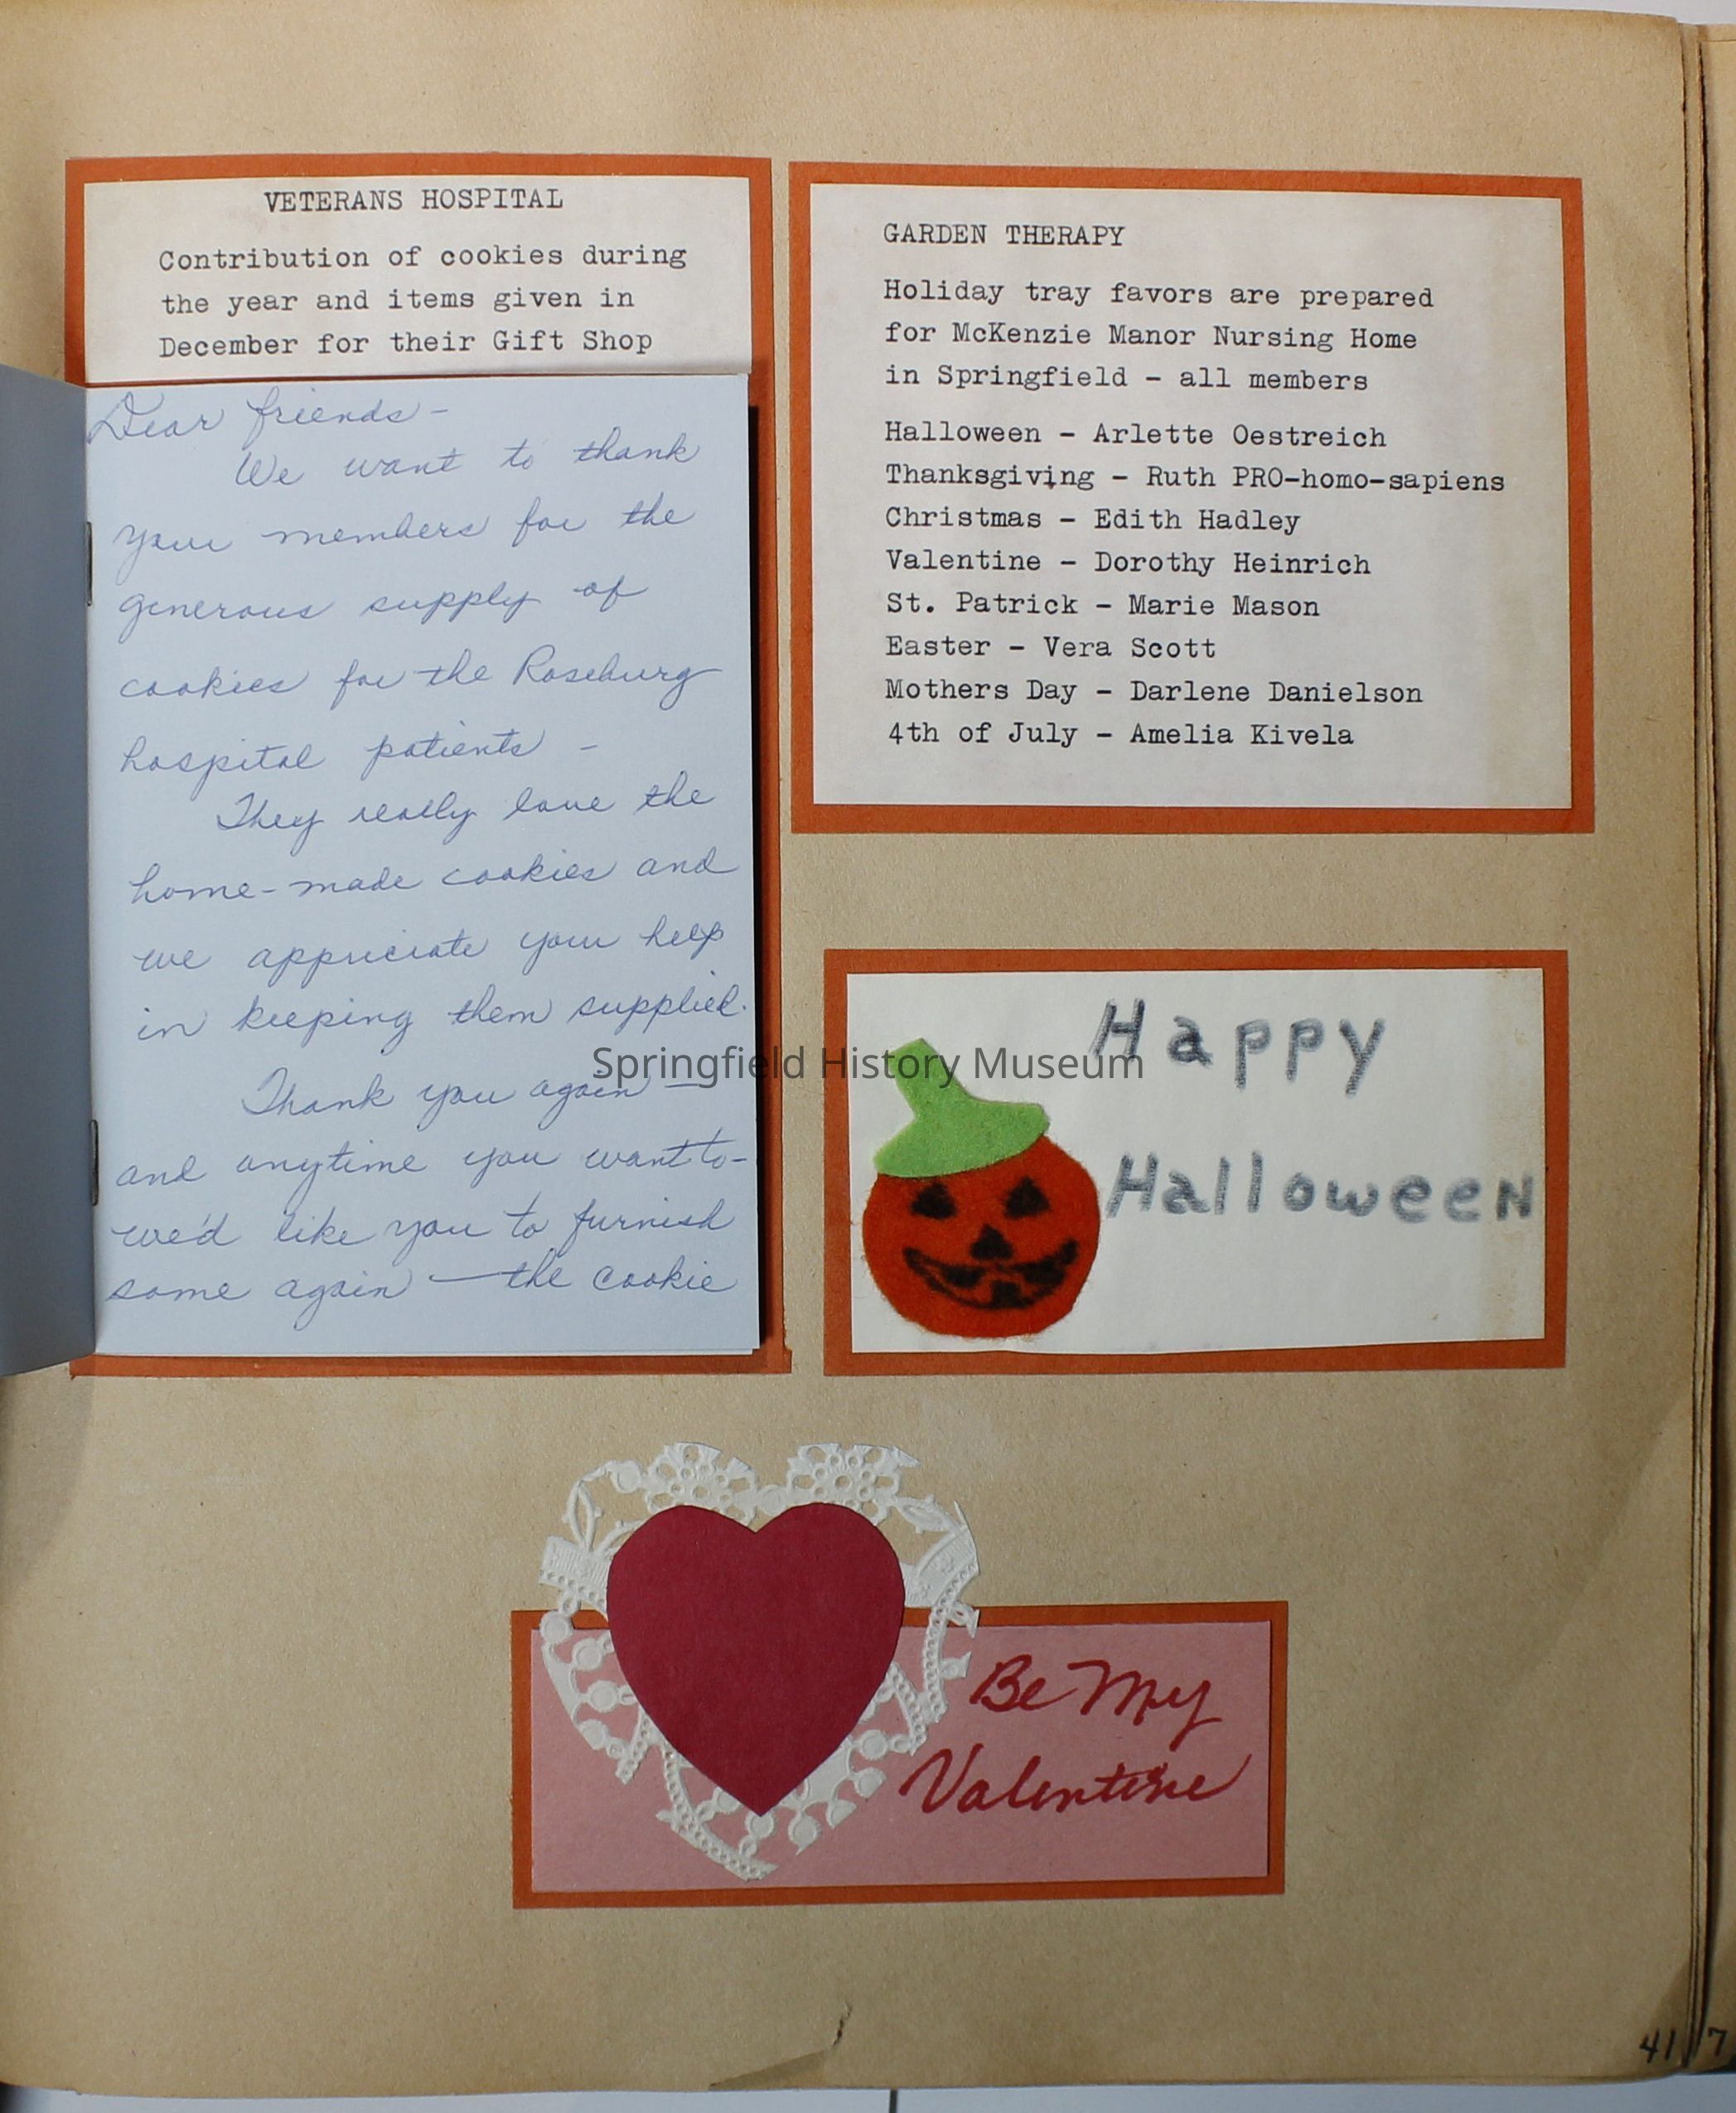 VETERANS HOSPITAL
Contribution of cookies during
the year and items given in
December for their Gift Shop
Dear friends -
We want to thank
your members for the
generous supply of
cookies for the Roseburg
hospital patients -
They really love the
home-made cookies and
we appriciate your help
in keeping them supplied.
Thank you again —
and anytime you want to -
we'd like you to furnish
some again — the cookie
GARDEN THERAPY
Holiday tray favors are prepared
for McKenzie Manor Nursing Home
in Springfield - all members
Halloween - Arlette Oestreich
Thanksgiving - Ruth PRO-homo-sapiens
Christmas - Edith Hadley
Valentine - Dorothy Heinrich
St. Patrick - Marie Mason
Easter - Vera Scott
Mothers Day - Darlene Danielson
4th of July - Amelia Kivela
Happy
Halloween
Springfield History Museum
Be My
Valentine
41
7